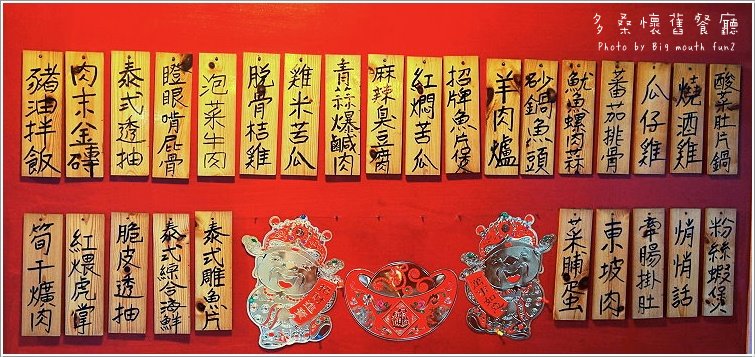 多桑懷舊餐廳
Photo by Big mouth fun2
酸菜肚片鍋
燒酒雞
瓜仔雞
蕃茄排骨
魷魚螺肉蒜
砂鍋魚頭
羊肉爐
招牌魚片煲
紅燜苦瓜
麻辣臭豆腐
青蒜爆鹹肉
雞米苦瓜
脫骨桔雞
泡菜牛肉
瞪眼啃屁骨
泰式透抽
肉末金磚
豬油拌飯
粉絲蝦煲
悄悄話
牽腸掛肚
東坡肉
菜脯蛋
泰式雕魚片
泰式綜合海鮮
脆皮透抽
紅煨虎掌
筍干爌肉